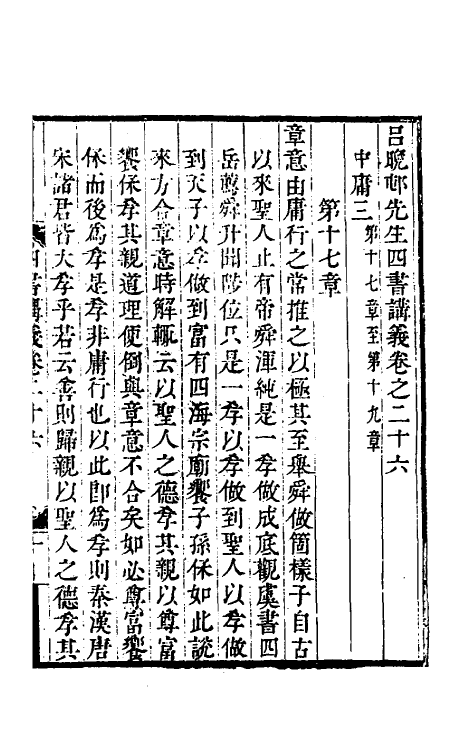 呂晚邨先生四書講義卷之二十六
中庸三第十七章至第十九章
第十七章
章意由庸行之常推之以極其至舉舜做箇樣子自古
以來聖人止有帝舜渾純是一孝做成底觀虞書四
岳薦舜升聞陟位只是一孝以孝做到聖人以孝做
到天子以孝做到富有四海宗廟饗子孫保如此說
來方合章意時解輒云以聖人之德孝其親以尊富
饗保孝其親道理便倒與章意不合矣如必尊富饗
保而後為孝是孝非庸行也以此卽為孝則秦漢唐
宋諸君皆大孝乎若云善則歸親以聖人之德孝其
四書講義卷二十六